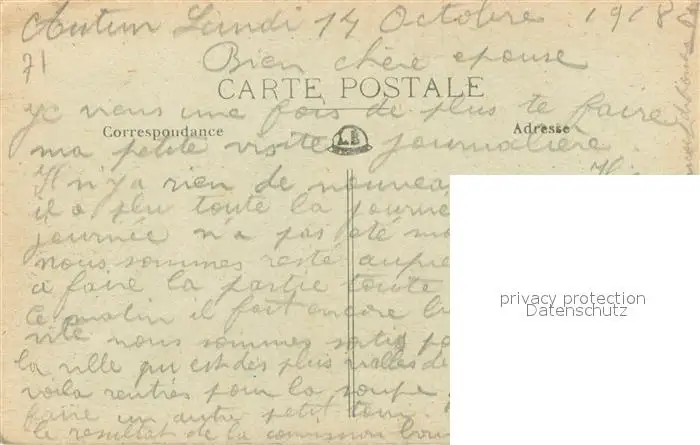 Autun Lundi 14 Octobre 1918
71
Bien chère epouse
CARTE POSTALE
je viens une fois de plus te faire
Correspondance
LB
Adresse
ma petite visite journalière.
Il n'y a rien de nouveau
il a plu toute la journé
journée n'a pas été
nous sommes resté aupre
a faire la partie toute
Ce matin il fait encore
nous sommes sortis
la ville qui est des plus de
voila rentrés pour la soupe
faire un autre petit tour.
le resultat de la commission
privacy protection
Datenschutz